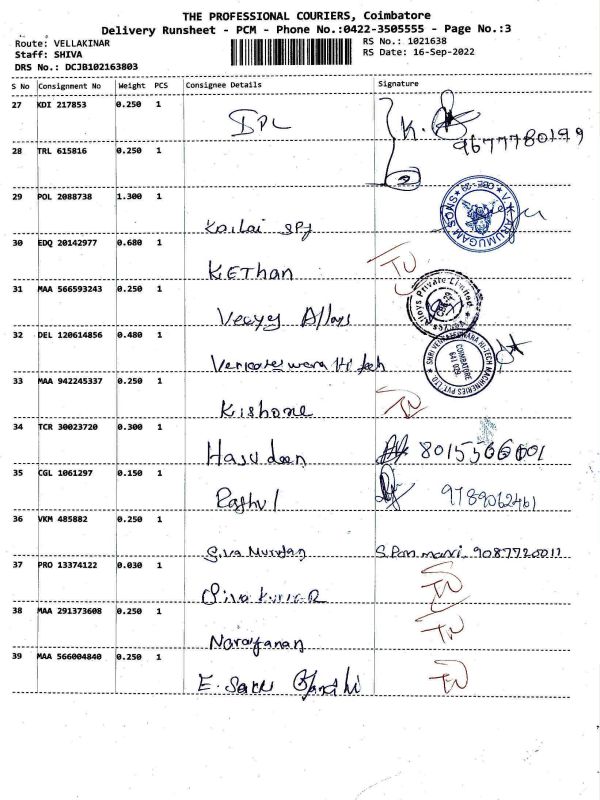 THE PROFESSIONAL COURIERS, Coimbatore
Delivery Runsheet - PCM - Phone No.:0422-3505555 - Page No.:3
Route: VELLAKINAR
Staff: SHIVA
DRS No.: DCJB102163803
RS No.: 1021638
RS Date: 16-Sep-2022
S No Consignment No Weight PCS Consignee Details Signature
27 KDI 217853 0.250 1
K. 9677780199
28 TRL 615816 0.250 1
29 POL 2088738 1.300 1
Kailai
V.ARUMUGAM SONS
30 EDQ 20142977 0.680 1
KEThan
31 MAA 566593243 0.250 1
Alloys
Alloys Private Limited
32 DEL 120614856 0.480 1
Hi tech
HI-TECH MACHINERIES PVT LTD
COIMBATORE
33 MAA 942245337 0.250 1
Kishore
34 TCR 30023720 0.300 1
35 CGL 1061297 0.150 1
9789062461
36 VKM 485882 0.250 1
Siva Murugan
37 PRO 13374122 0.030 1
38 MAA 291373608 0.250 1
Narayanan
39 MAA 566004840 0.250 1
E.